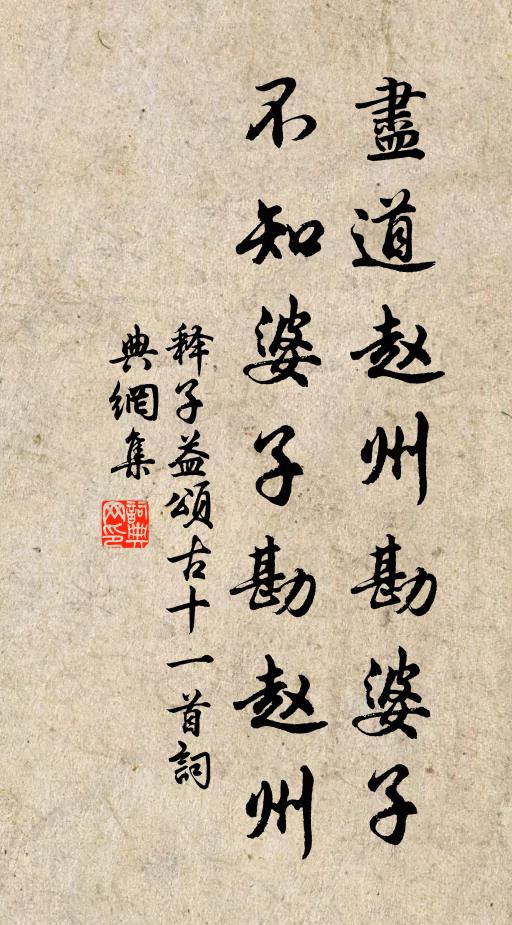 盡道赵州勘婆子
不知婆子勘赵州
释子益頌古十一首詞
典網集
詞典
网印